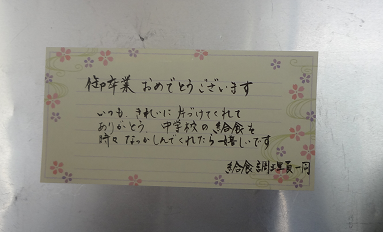 御卒業 おめでとうございます
いつも、きれいに 片づけてくれて
ありがとう。中学校の給食を
時々 なつかしんでくれたら嬉しいです
給食調理員一同